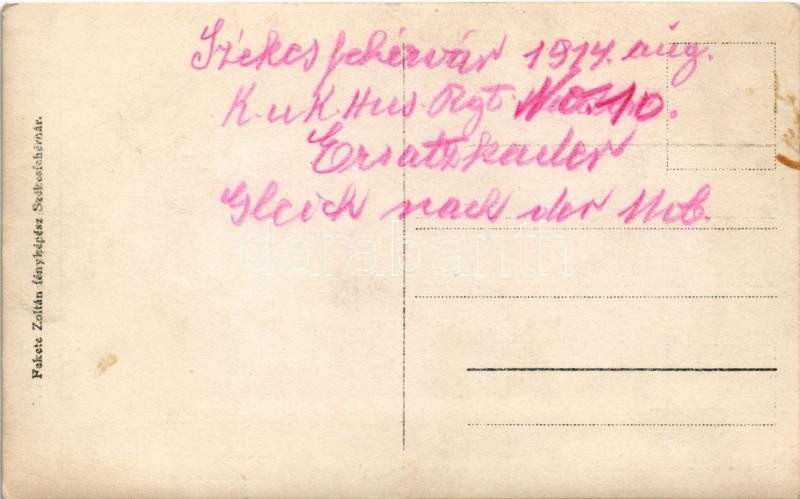 Székesfehérvár 1914. aug.
K.u.K. Hus. Rgt. No. 10.
Ersatzkader
Gleich nach der Mob.
Fekete Zoltán fényképész Székesfehérvár.
darabanth